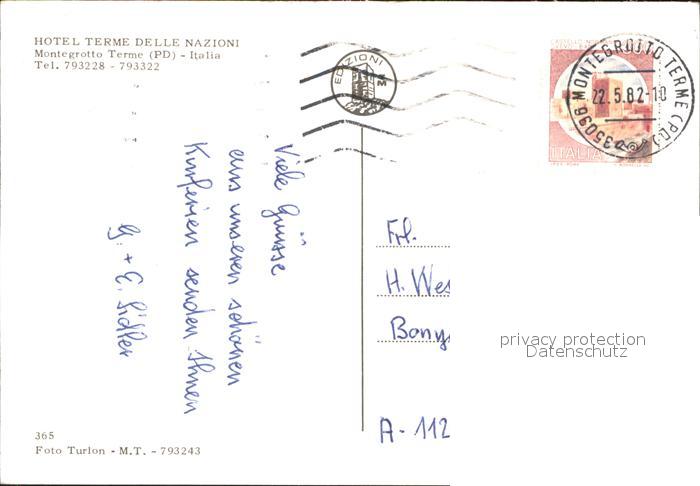 HOTEL TERME DELLE NAZIONI
Montegrotto Terme (PD) - Italia
Tel. 793228 - 793322
EDIZIONI
M
35036 MONTEGROTTO TERME (PD)
22.5.82-10
ITALIA
Viele Grüsse
aus unseren schönen
Kurferien senden Ihnen
G. + E. Sidler
Frl.
H. Wes
Bany
A - 112
privacy protection
Datenschutz
365
Foto Turlon - M.T. - 793243